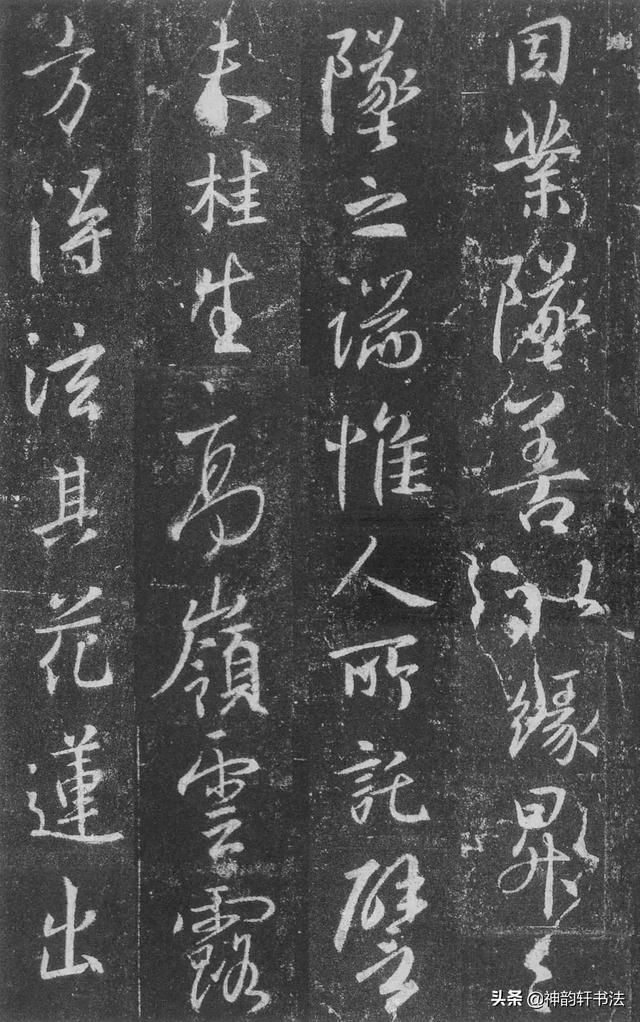 因業墜善以緣昇々
墜之端惟人所託譬
夫桂生高嶺雲露
方得泫其花蓮出
头条 @神韵轩书法